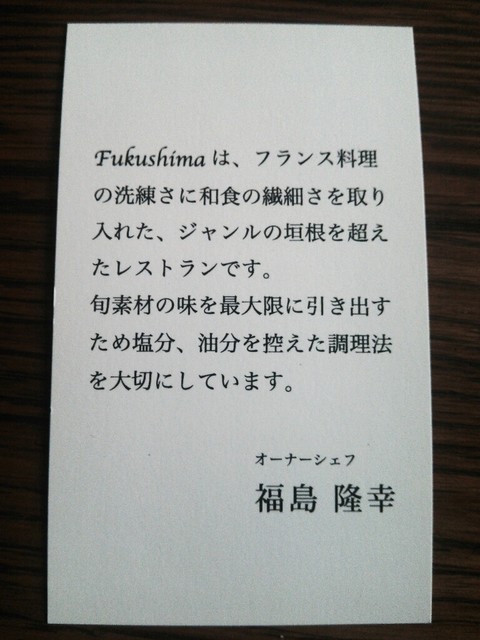 Fukushima は、フランス料理
の洗練さに和食の繊細さを取り
入れた、ジャンルの垣根を超え
たレストランです。
旬素材の味を最大限に引き出す
ため塩分、油分を控えた調理法
を大切にしています。
オーナーシェフ
福島 隆幸